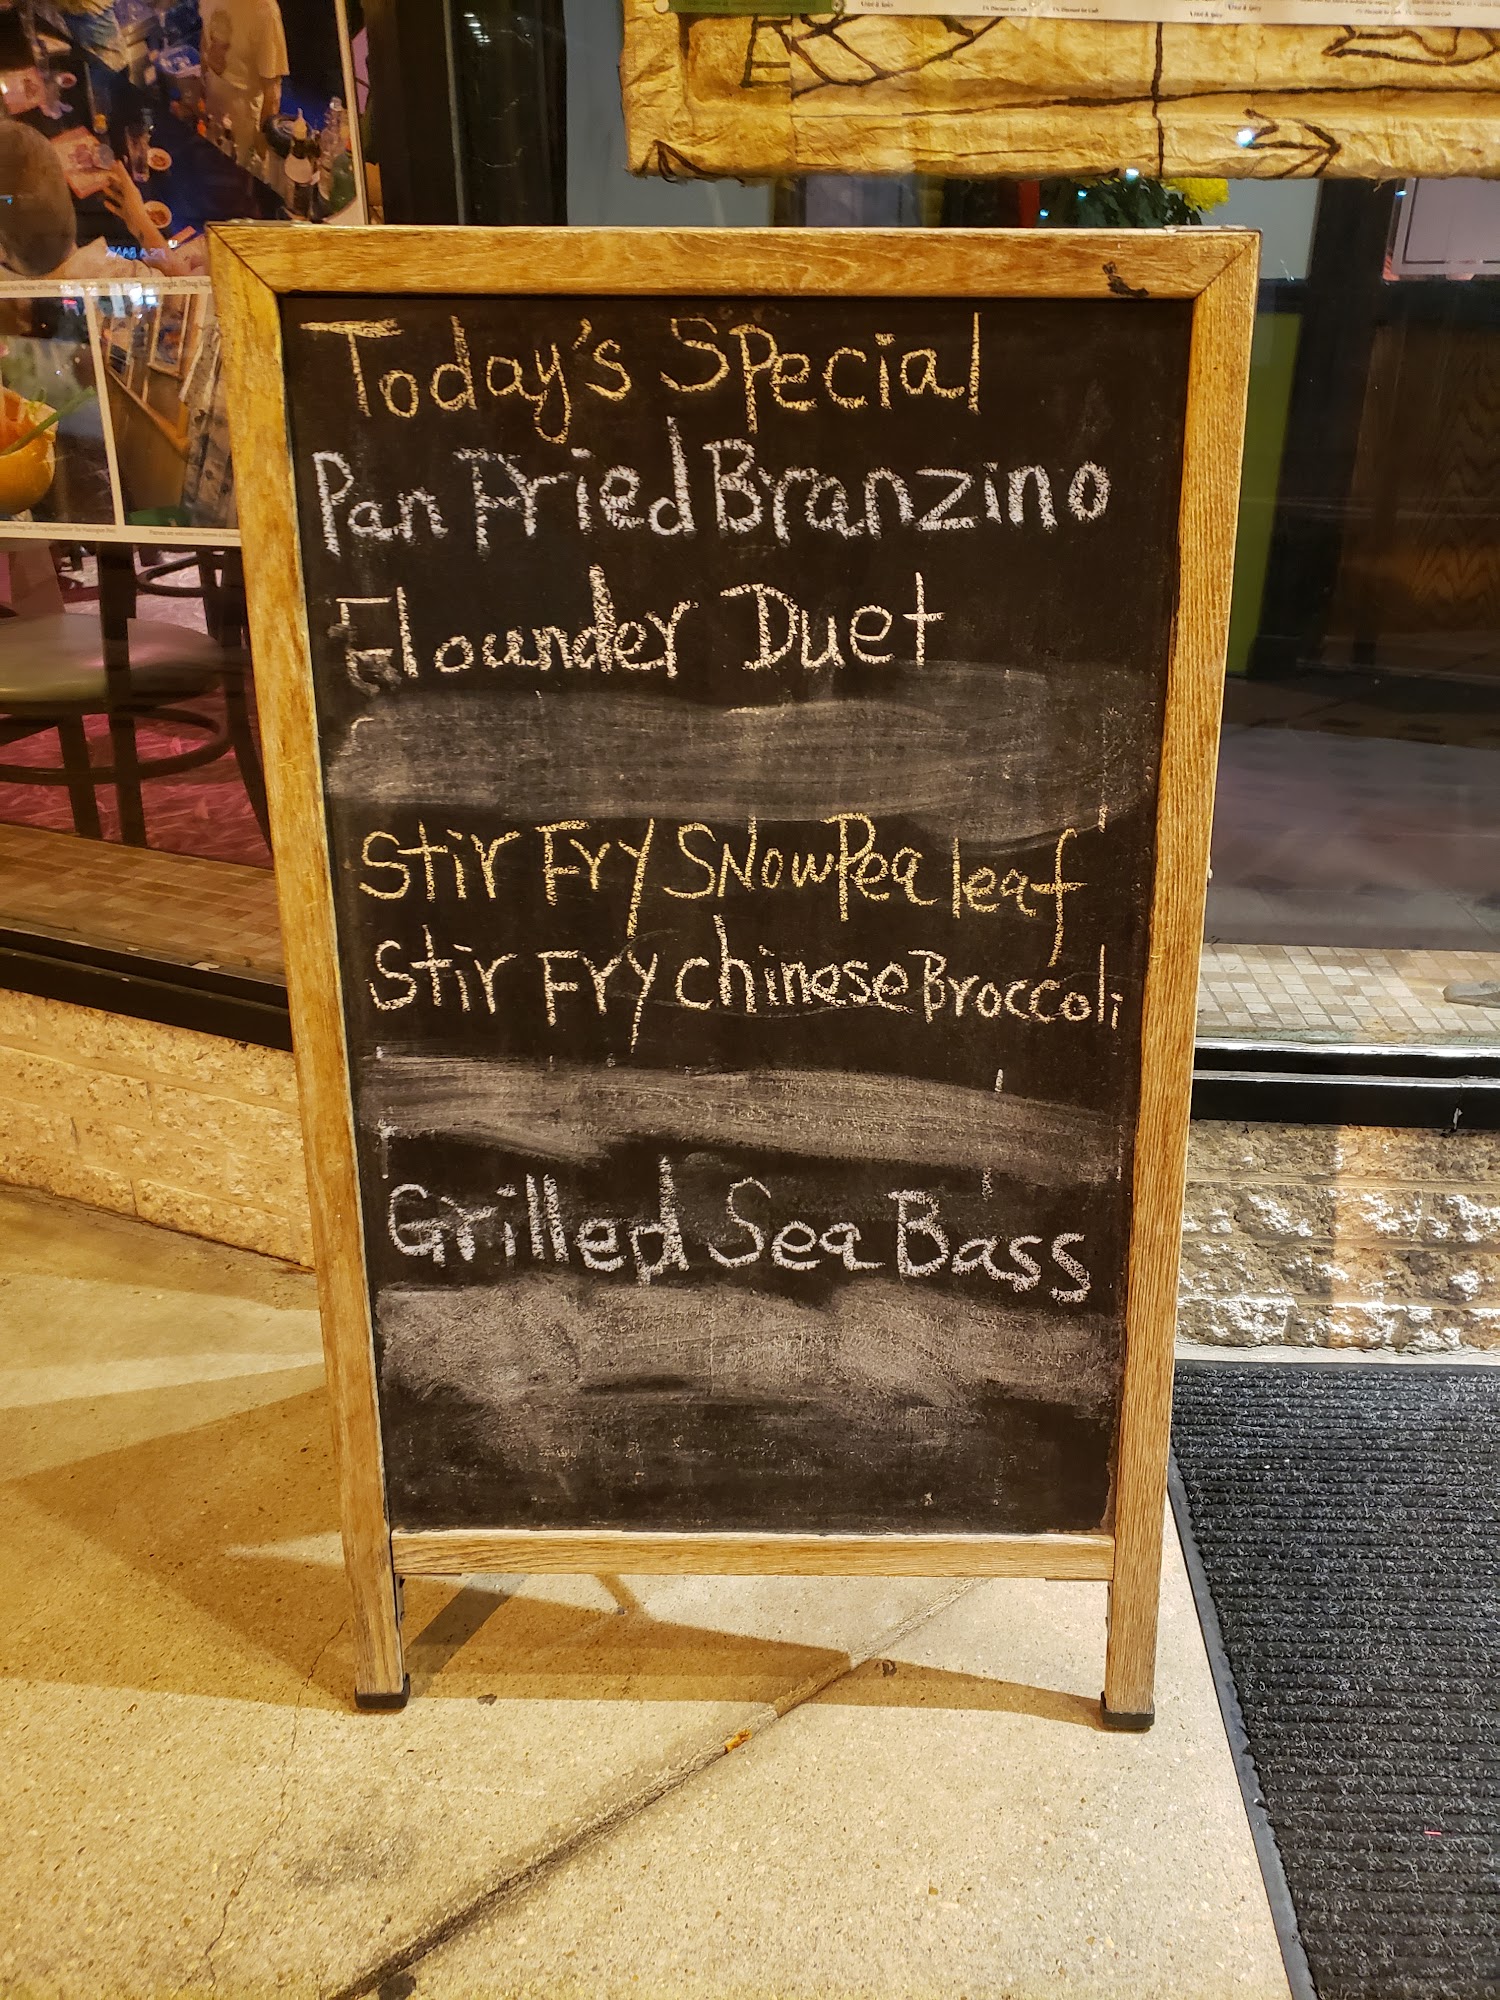 Today's Special
Pan Fried Branzino
Flounder Duet
Stir Fry SNow Pea leaf
Stir Fry chinese Broccoli
Grilled Sea Bass